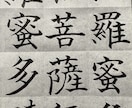 羅蜜
菩薩
蜜多